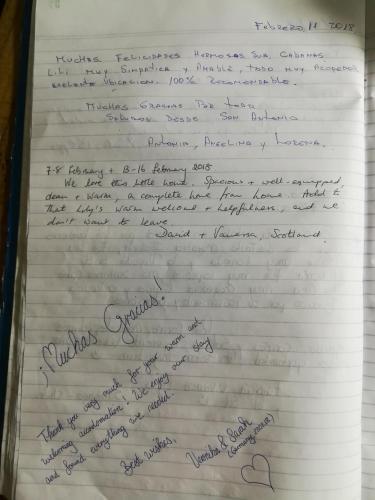 Febrero, 11 2018
Muchas Felicidades Hermosas sus Cabañas
Lili muy simpatica y Amable, todo muy acogedor
Exelente Ubicación. 100% Recomendable.
Muchas Gracias Por todo
Saludos Desde San Antonio
Antonia, Angelina y Lorena.
7-8 February + 13-16 February 2018
We love this little house. Spacious + well-equipped,
clean + warm, a complete home from home. Add to
that Lily's warm welcome + helpfulness, and we
don't want to leave
David + Vanessa, Scotland.
¡Muchas Gracias!
Thank you very much for your warm and
welcoming accomodation! We enjoy our stay
and found everything we needed.
Best wishes,
& Sarah